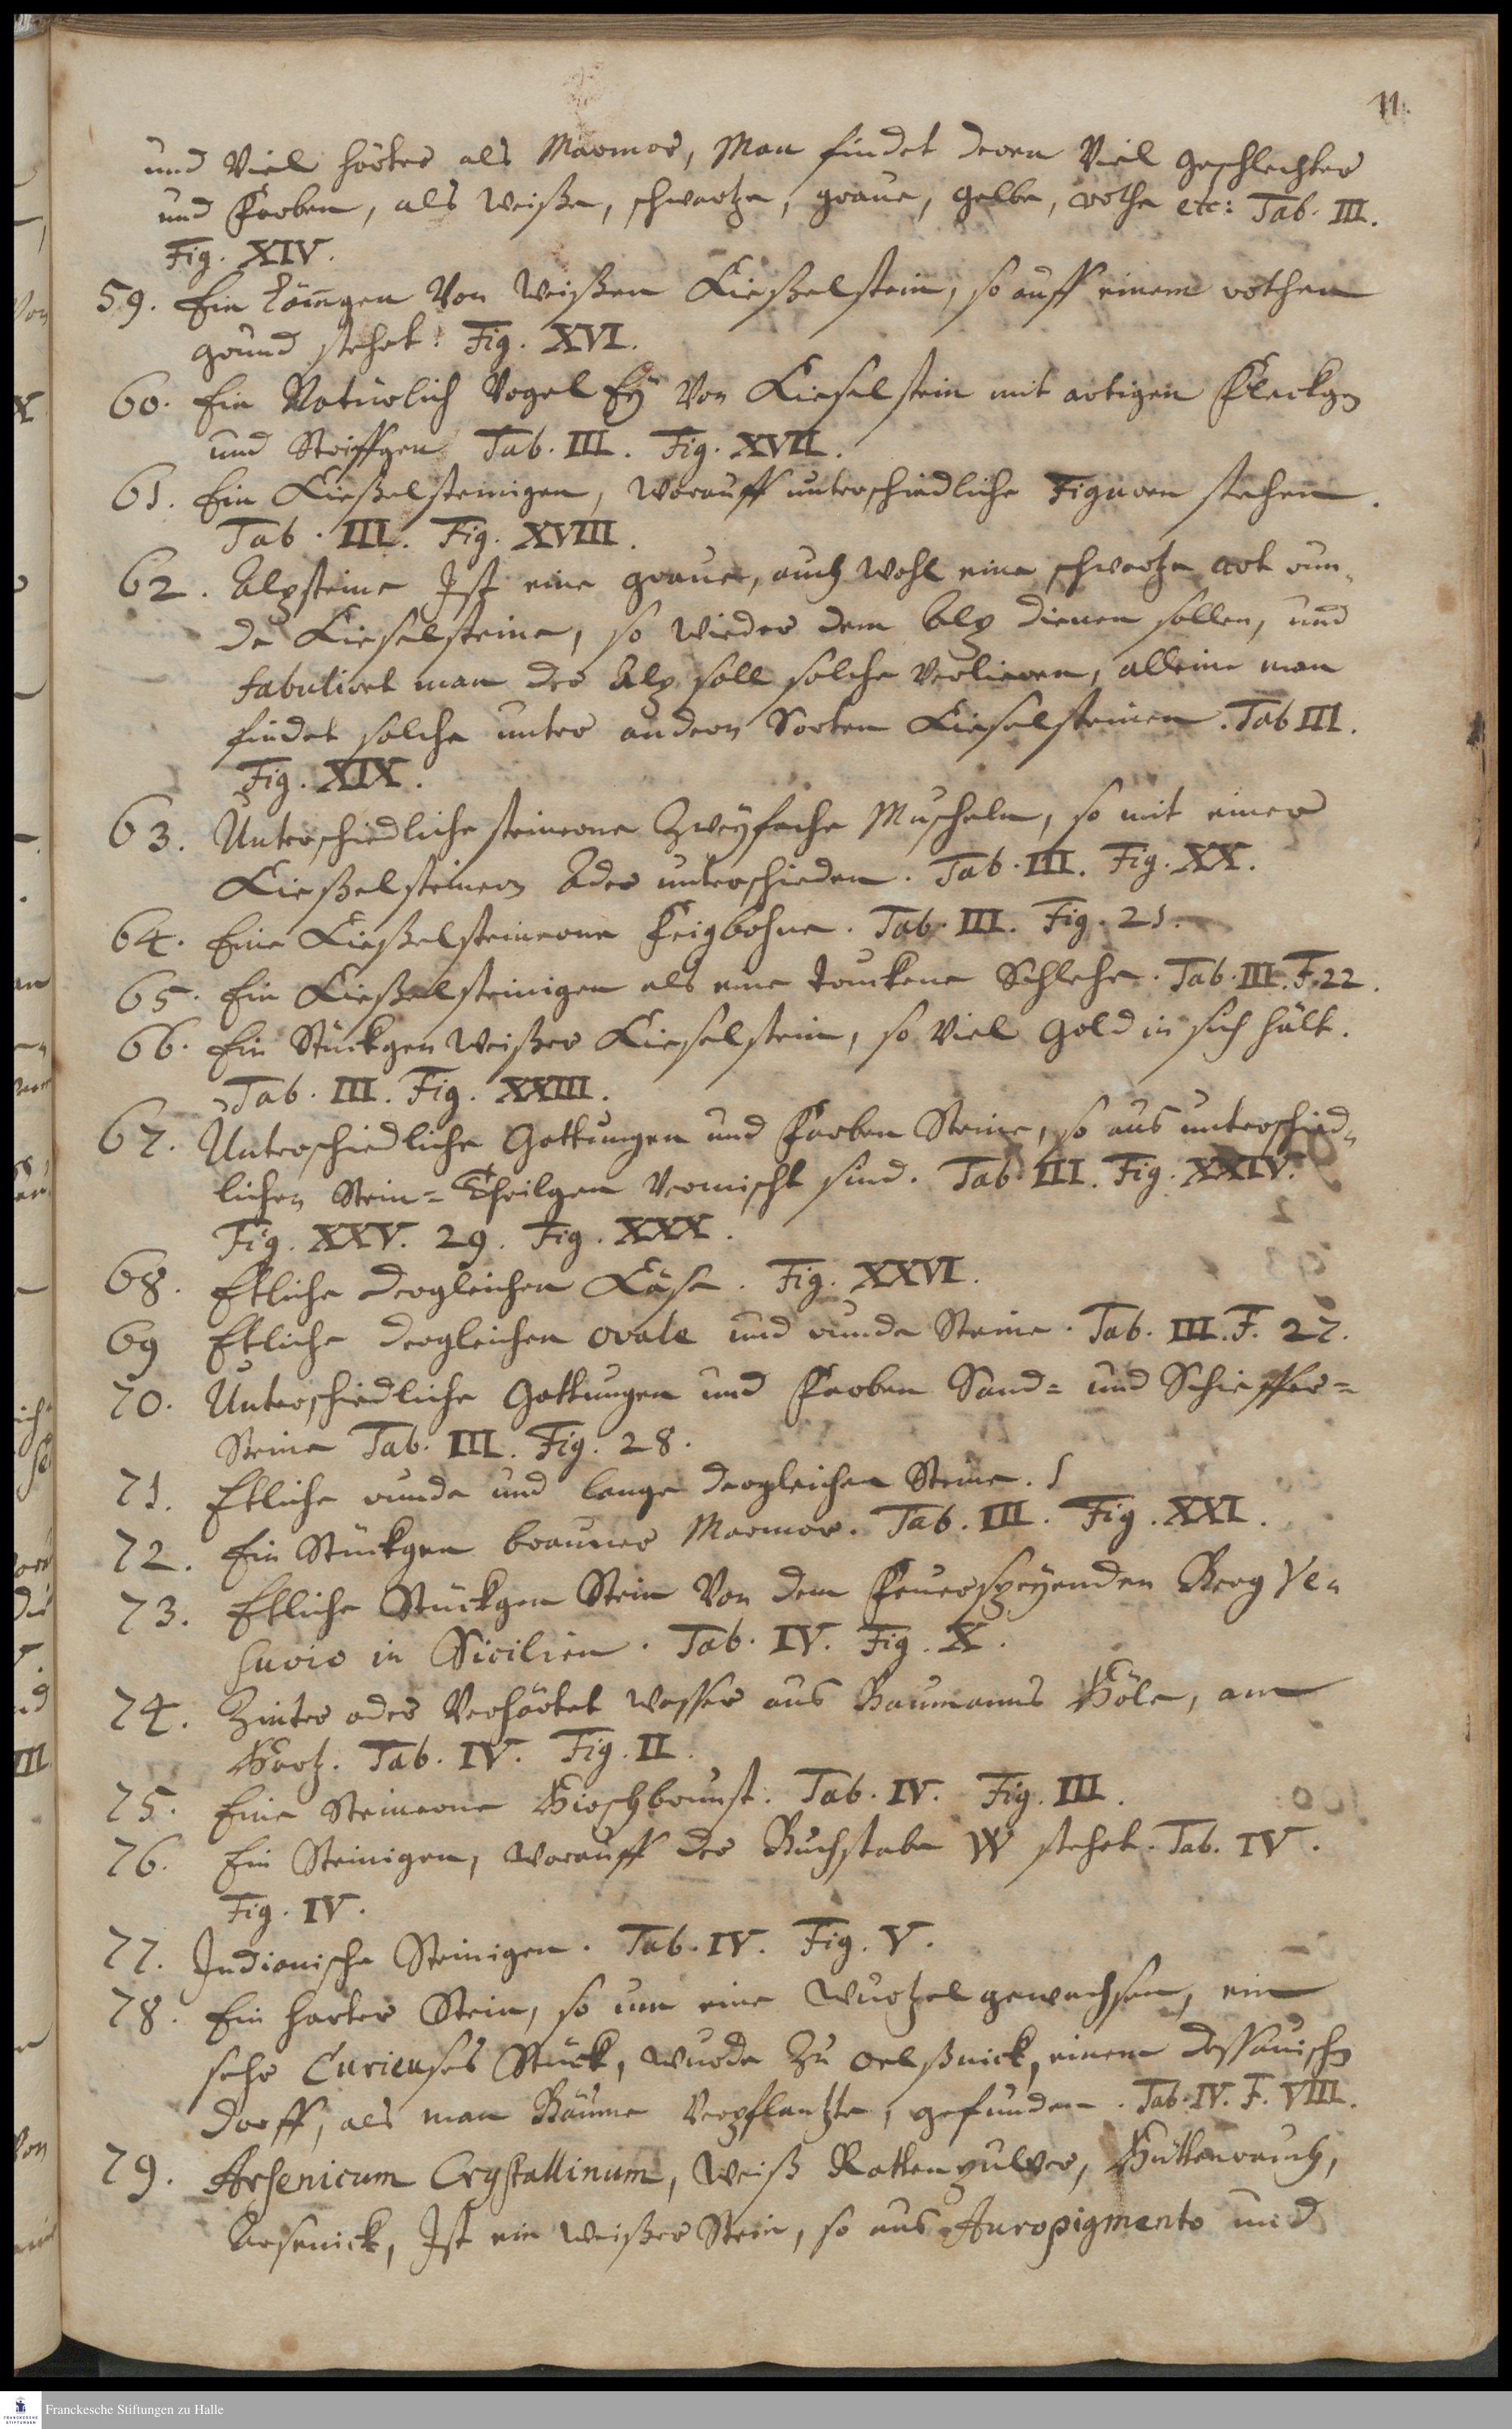 11.
und Viel härter als Marmor, Man findet deren Viel geschlechter
und Farben, als weiße, schwartze, graue, gelbe, rothe etc: Tab. III.
Fig. XIV.
59. Ein Lämgen Von weißen Kießelstein, so auff einem rothen
grund stehet. Fig. XVI.
60. Ein Natürlich Vogel Eÿ Von Kieselstein mit artigen Fleckgen
und Striffgen Tab. III. Fig. XVII.
61. Ein Kießelsteinigen, worauff unterschiedliche Figuren stehen.
Tab. III. Fig. XVIII.
62. Alpsteine Ist eine graue, auch wohl eine schwartze art run-
de Kieselsteine, so wieder dem Alp dienen sollen, und
fabuliret man der Alp soll solche verlieren, alleine man
findet solche unter andern Sorten Kieselsteinen. Tab III.
Fig. XIX.
63. Unterschiedliche steinerne Zweÿfache Muscheln, so mit einer
Kießelsteinern Ader unterschieden. Tab. III. Fig. XX.
64. Eine Kießelsteinerne Feigbohne. Tab. III. Fig. 21.
65. Ein Kießelsteinigen als eine truckene Schlehe. Tab. III. F. 22.
66. Ein Stückgen weißer Kieselstein, so Viel Gold in sich hält.
Tab. III. Fig. XXIII.
67. Unterschiedliche Gattungen und Farben Steine, so aus unterschied-
lichen Stein=Theilgen vermischt sind. Tab. III. Fig. XXIV.
Fig. XXV. 29. Fig. XXX.
68. Etliche dergleichen Käse. Fig. XXVI.
69 Etliche dergleichen ovale und runde Steine. Tab. III. F. 27.
70. Unterschiedliche Gattungen und Farben Sand= und Schieffer=
Steine Tab. III. Fig. 28.
71. Etliche runde und lange dergleichen Steine.
72. Ein Stückgen brauner Marmor. Tab. III. Fig. XXI.
73. Etliche Stückgen Stein Von dem Feuerspeÿenden Berg Ve-
suvio in Sicilien. Tab. IV. Fig. X.
74. Zinter oder Verhärtet Wasser aus Baumanns Höle, am
Hartz. Tab. IV. Fig. II.
75. Eine Steinerne Hirschbrunst. Tab. IV. Fig. III.
76. Ein Steinigen, worauff der Buchstabe W stehet. Tab. IV.
Fig. IV.
77. Indianische Steinigen. Tab. IV. Fig. V.
78. Ein harter Stein, so um eine Wurtzel gewachsen, ein
sehr Curieuses Stück, wurde zu Oelßnick, einem Dessauischen
Dorff, als man Bäume Verpflantzte, gefunden. Tab. IV. F. VIII.
79. Arsenicum Crystallinum, weiß Rattenpulver, Hüttenrauch,
Arsenick, Ist ein weißer Stein, so aus Auropigmento und
Franckesche Stiftungen zu Halle